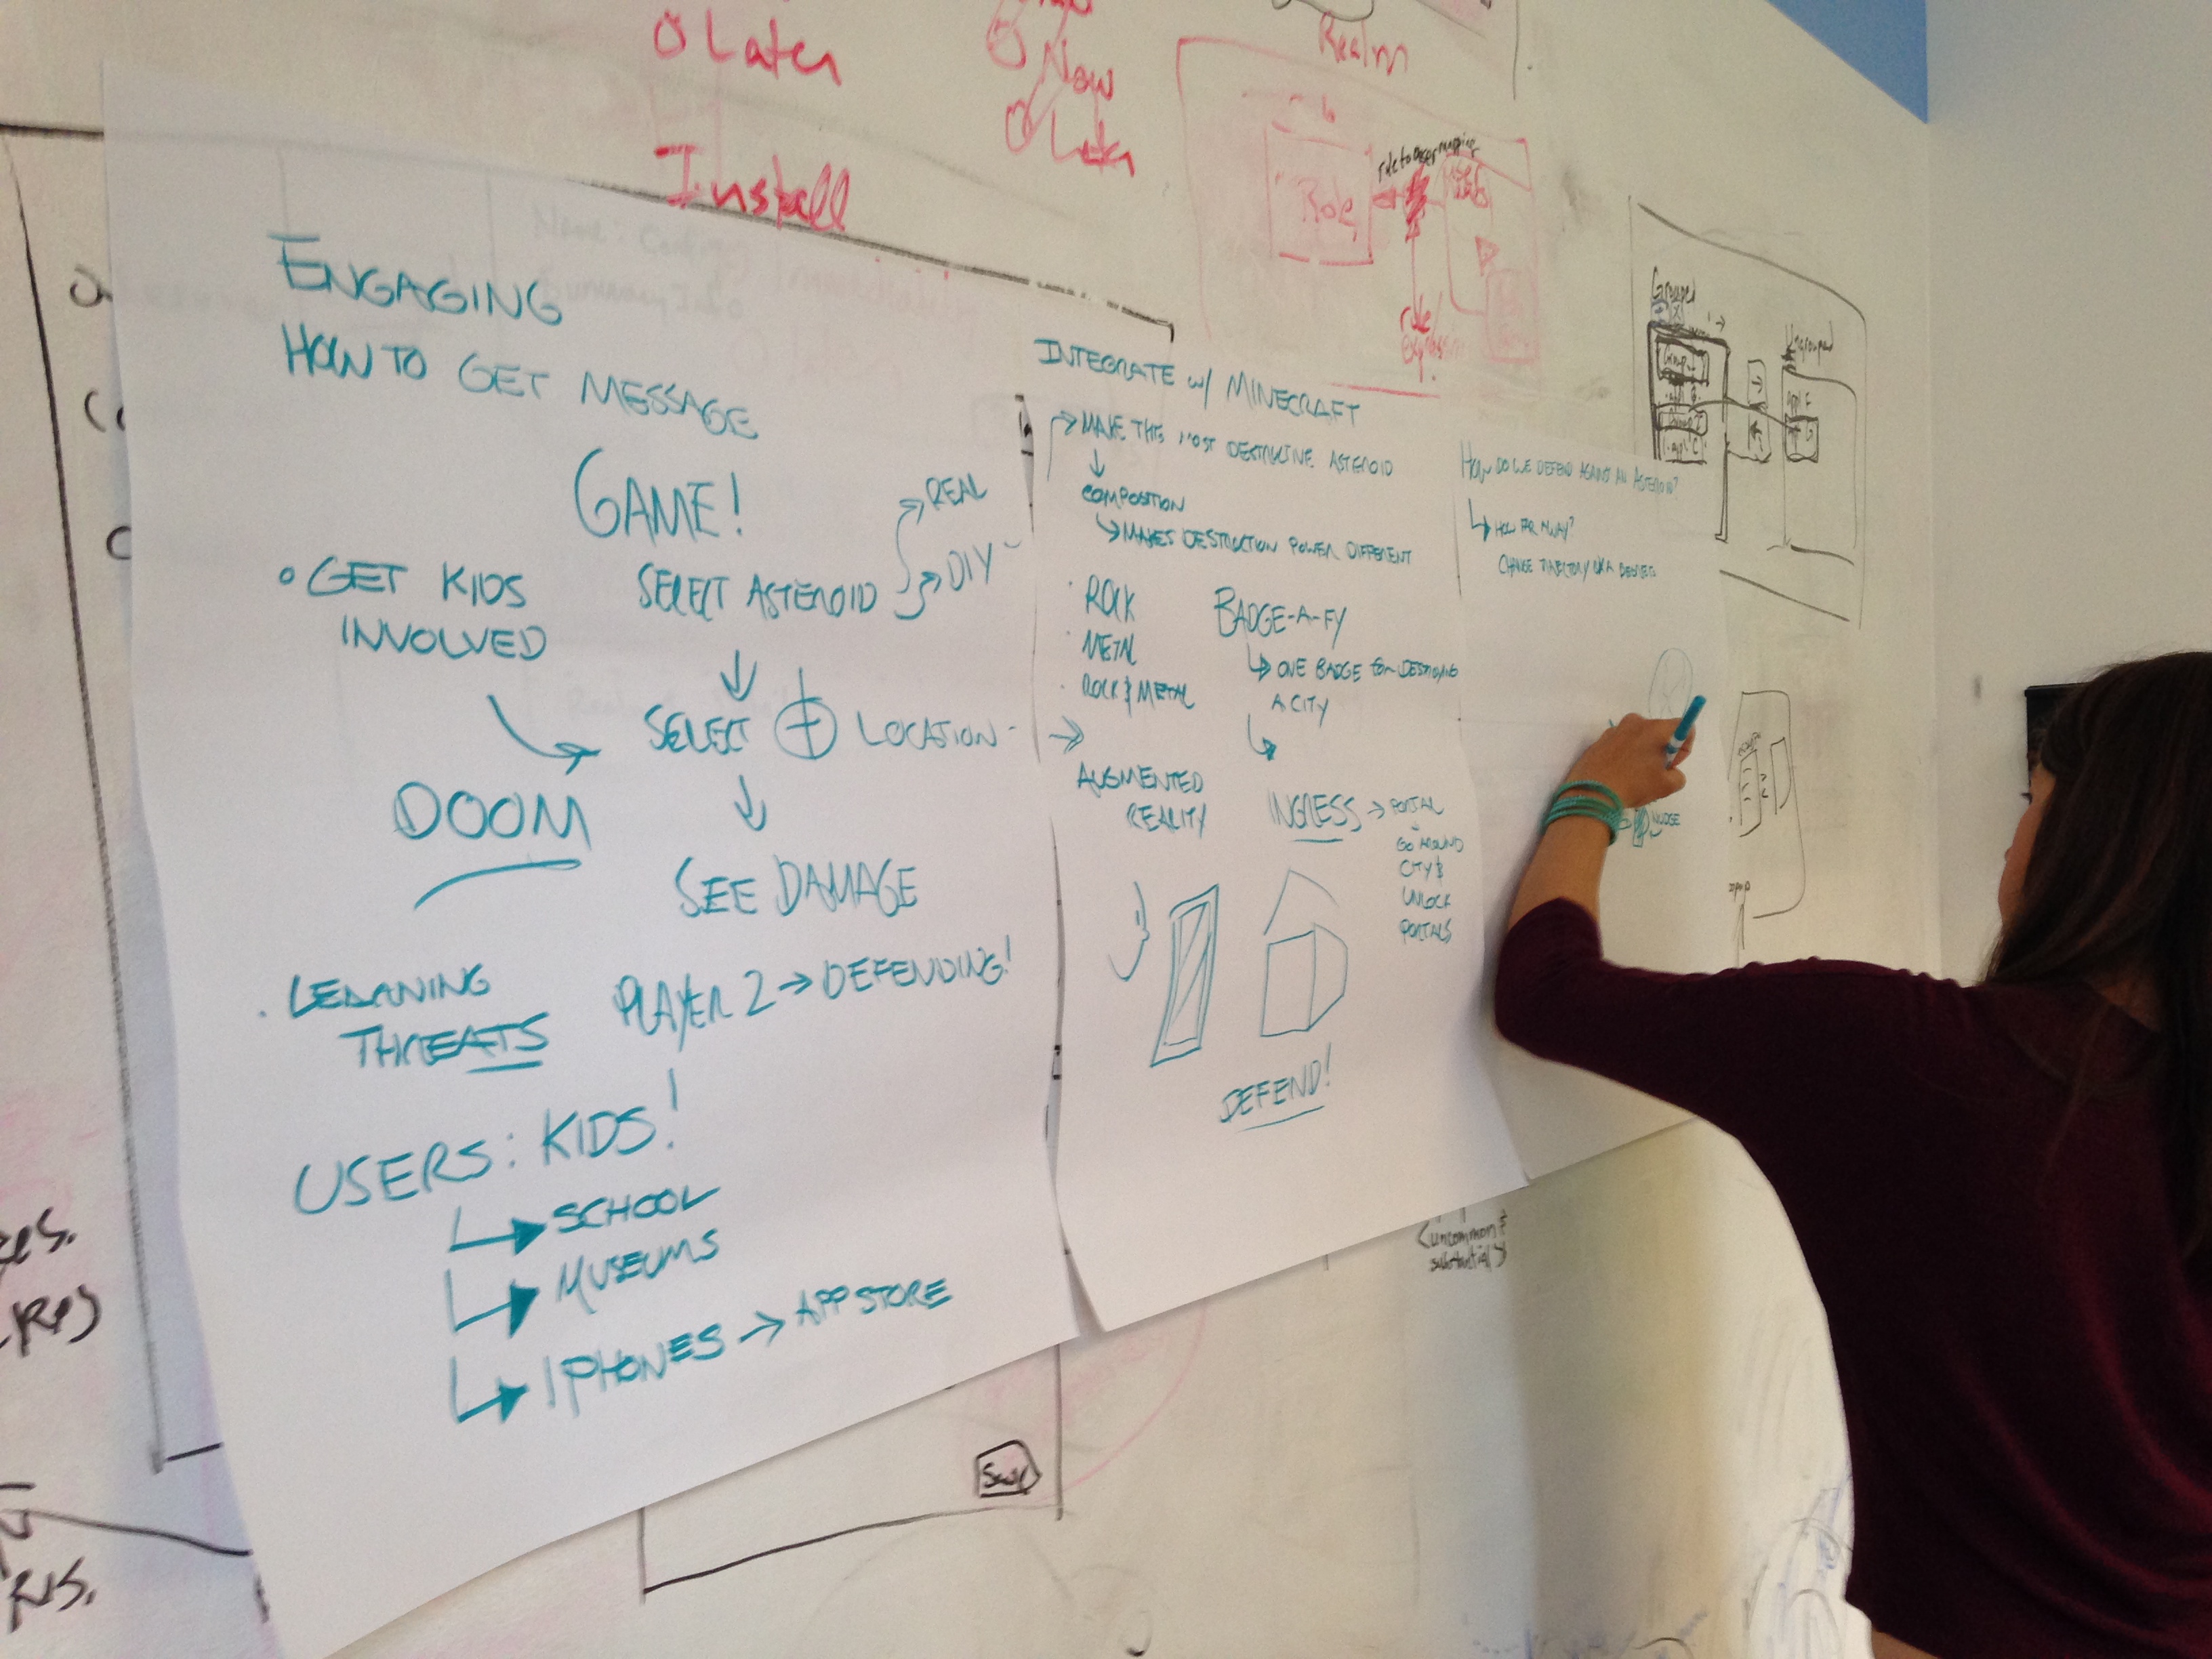 Later
Now
Later
Install
Realm
Role
role to user mapping
role
ENGAGING
HOW TO GET MESSAGE
GAME!
REAL
DIY
• GET KIDS
INVOLVED
SELECT ASTEROID
SELECT LOCATION
DOOM
SEE DAMAGE
• LEARNING
THREATS
PLAYER 2 → DEFENDING!
USERS: KIDS!
SCHOOL
MUSEUMS
IPHONES → APP STORE
INTEGRATE w/ MINECRAFT
MAKE THE MOST DESTRUCTIVE ASTEROID
COMPOSITION
MAKES DESTRUCTION POWER DIFFERENT
• ROCK
• METAL
• ROCK & METAL
BADGE-A-FY
ONE BADGE for DESTROYING
A CITY
AUGMENTED
REALITY
INGRESS → PORTAL
GO AROUND
CITY &
UNLOCK
PORTALS
DEFEND!
HOW DO WE DEFEND AGAINST AN ASTEROID?
HOW FAR AWAY?
CHANGE TRAJECTORY
NUDGE
Grouped
Ungrouped
(uncommon &
substantial)
Save